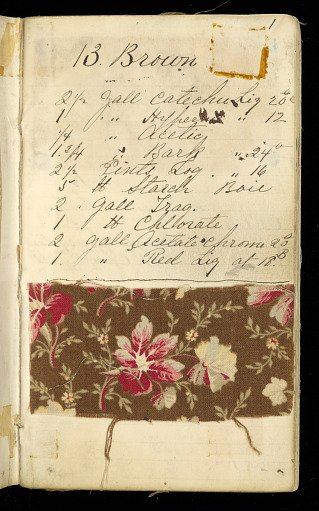 1
13. Brown
2 1/2 Gall Catechu Liq 20°
1 " Hypea " 12
1/4 " Acetic
1.3/4 " Bark " 24°
2 1/2 Pints Log. " 16
5 lb Starch Boil
2 Gall Trag.
1 lb Chlorate
2 Gall Acetate Chrome 20
1. " Red Liq at 18